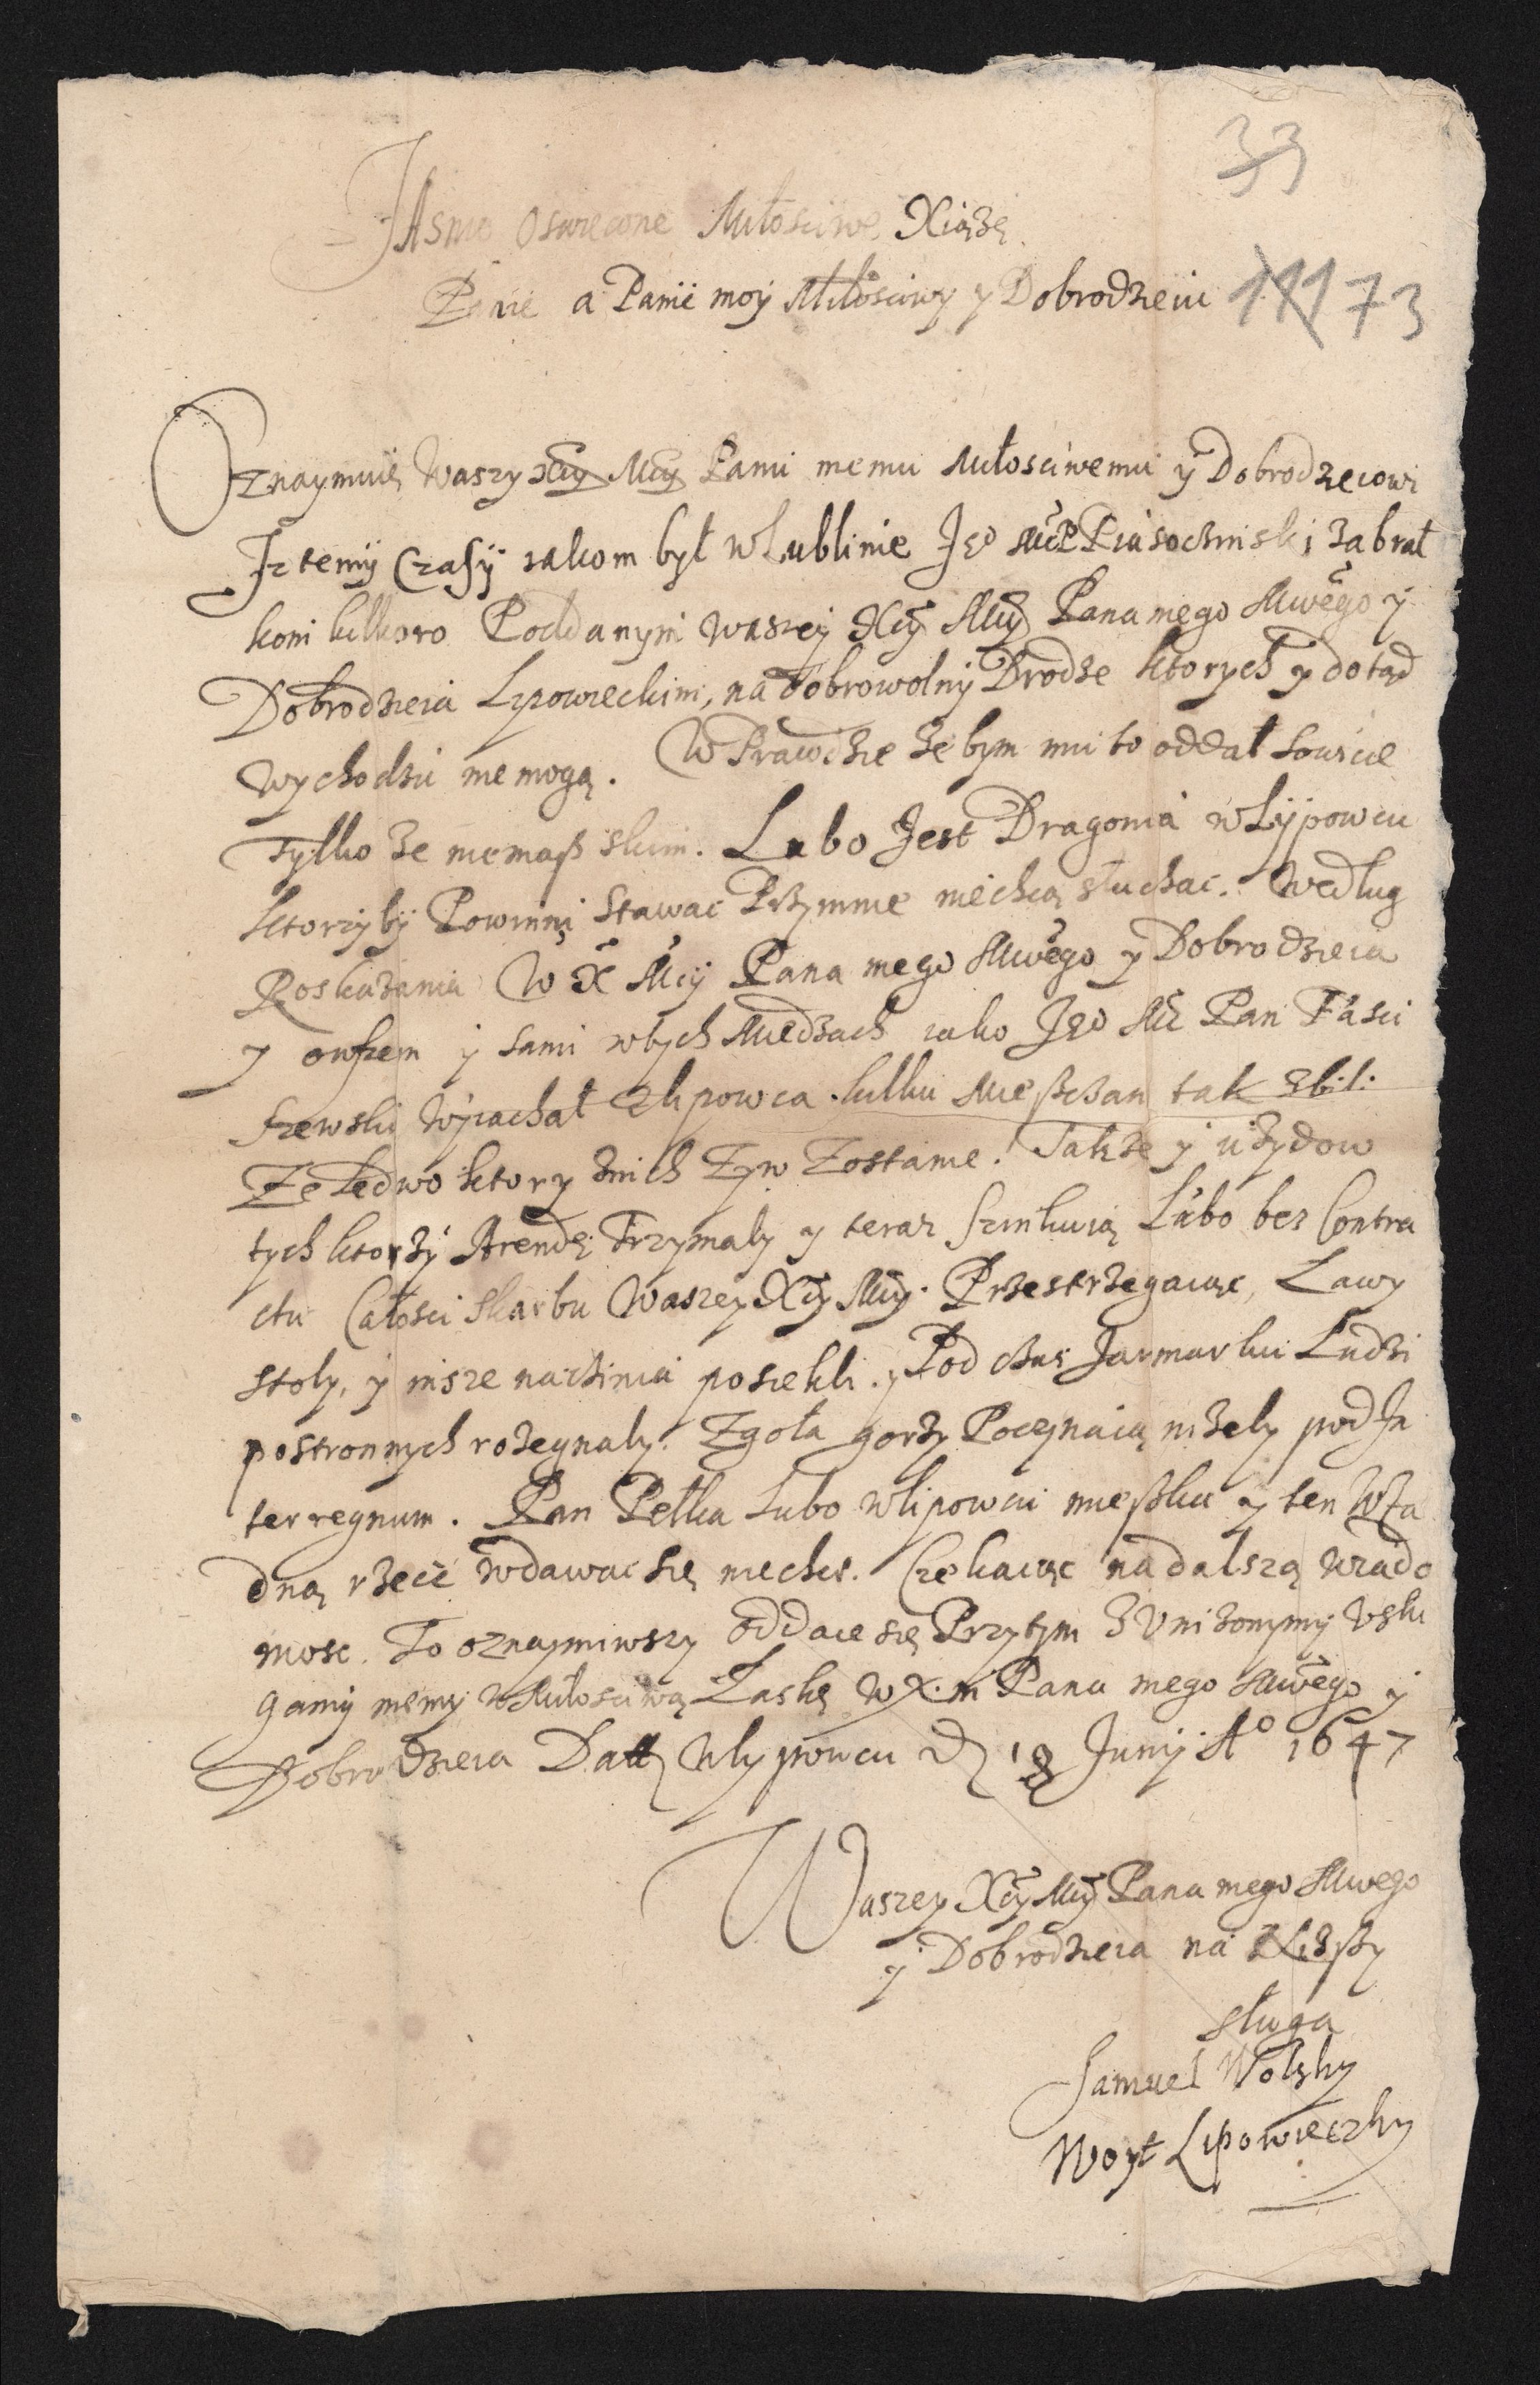 33
JAsnie Oswiecone Miłosciwe Xiążę
Panie a Panie moÿ Miłosciwy y Dobrodzieiu 73
Oznaymuię Waszy Xcy Mcy Panu memu Miłosciwemu ÿ Dobrodzieiowi
Iz temÿ Czasÿ iakom był w Lublinie Jeo Mć P Piasoczinski zabrał
koni kilkoro Poddanym Waszeÿ Xcÿ Mcÿ Pana mego Mwego y
Dobrodzieia Lipowieckim, na dobrowolnÿ Drodze ktorych y dotąd
wychodzic niemogą. W Prawdzie żebym mu to oddał sowicie
Tylko że niemaß skim. Lubo Jest Dragonia w Lÿpowcu
ktorzybÿ Powinni Stawac Przymnie niechcą słuchac. Według
Roskazania W X Mcÿ Pana mego Mwego y Dobrodzieia
y owszem ÿ sami wtych Miedzach iako Jeo Mć Pan Fasci
szewski wyiachał zlipowca kilku Mießczan tak zbili
Ze Ledwo ktory znich Zyw Zostanie. Także ÿ uzydow
tych ktorzÿ Arendę Trzymaly y teraz szinkuią Lubo bez Contra
ctu Całosci skarbu Waszey Xcÿ Mcÿ. Przestrzegaiąc, Lawy
stoly, ÿ insze naczinia posiekli. y Pod czas Jarmarku Ludzi
postronnych rozegnaly. Zgoła gorzy Poczynaią niżely pod In
terregnum. Pan Pełka Lubo wlipowcu mießka y ten W Ża
dną rzecz wdawac się niechce. Czekaiąc na dalszą wiado
mosc. To oznaymiwszy oddaie się Przytym z Unizonymÿ Usłu
gamÿ memÿ w Miłosciwą Łaskę W X. m Pana mego Mwego ÿ
Dobrodzieia Datt Wlypowcu D 18 Junÿ Ao 1647
Waszey Xcÿ Mcÿ Pana mego Mwego
ÿ Dobrodzieia na niżßy
sługa
Samuel Wolsky
Woyt Lipowieczky